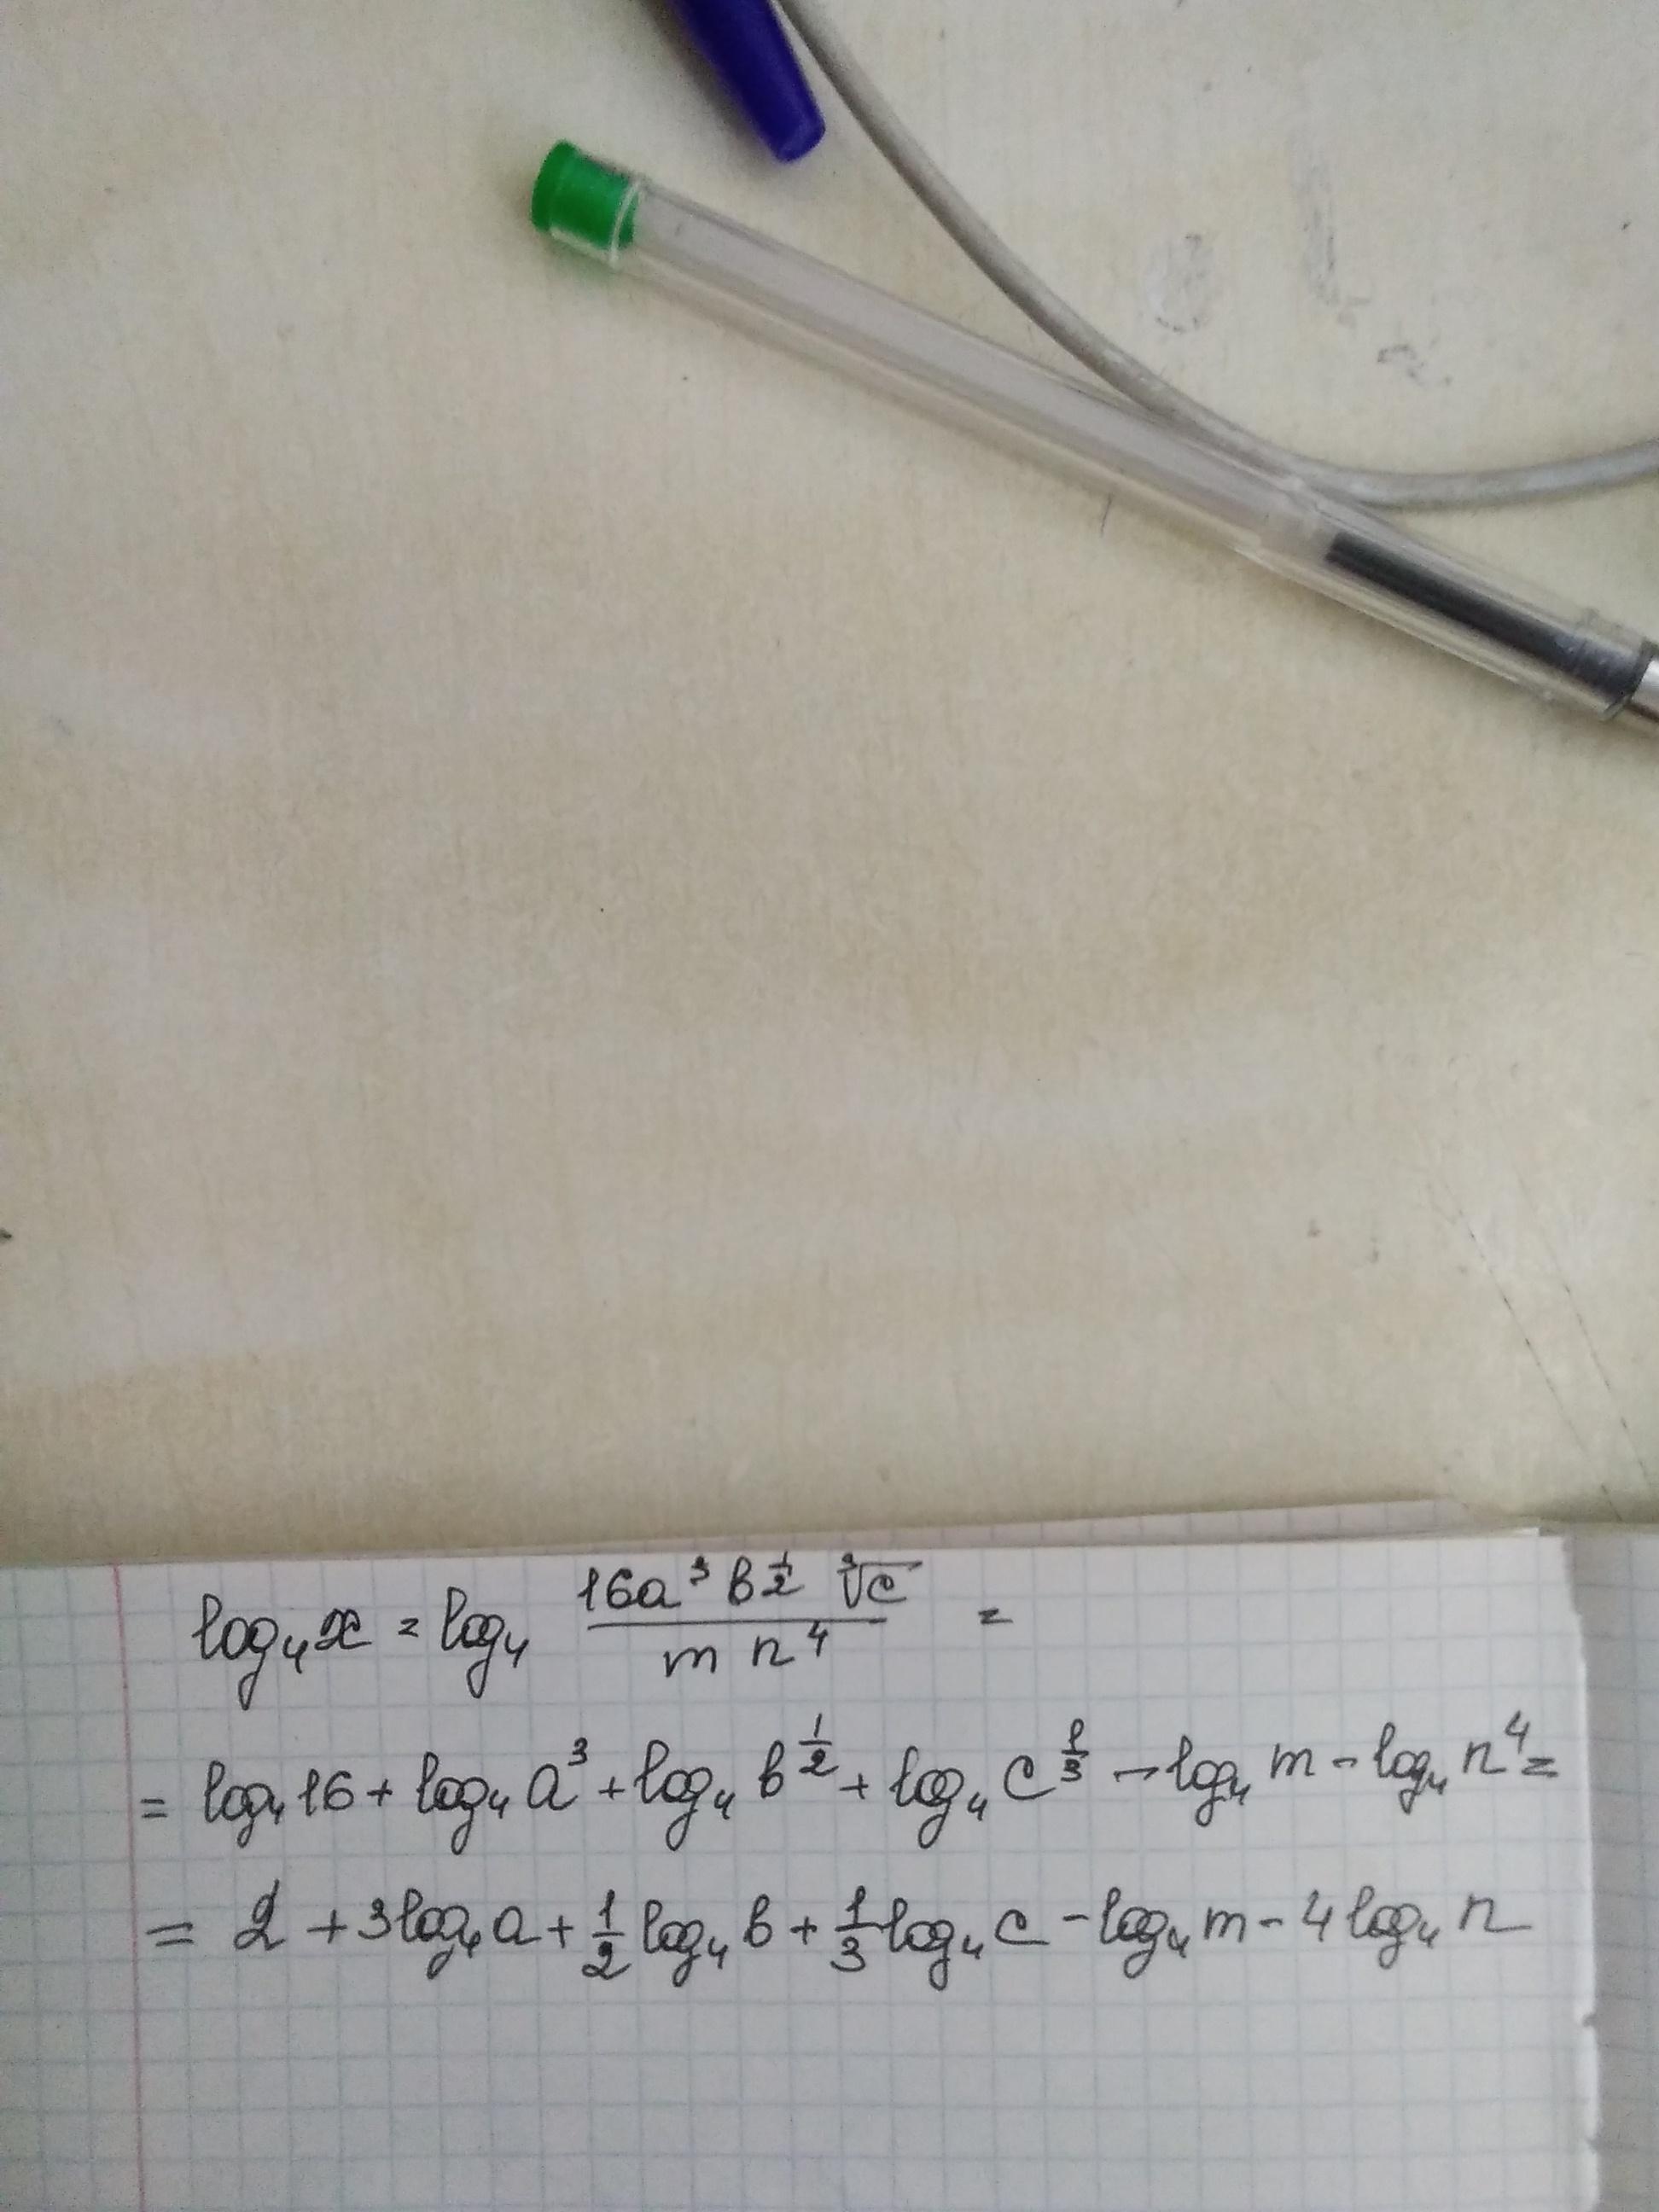 log₄x = log₄ (16a³ b^(1/2) ∛c) / (m n⁴) =
= log₄16 + log₄a³ + log₄b^(1/2) + log₄c^(1/3) - log₄m - log₄n⁴ =
= 2 + 3log₄a + 1/2 log₄b + 1/3 log₄c - log₄m - 4log₄n